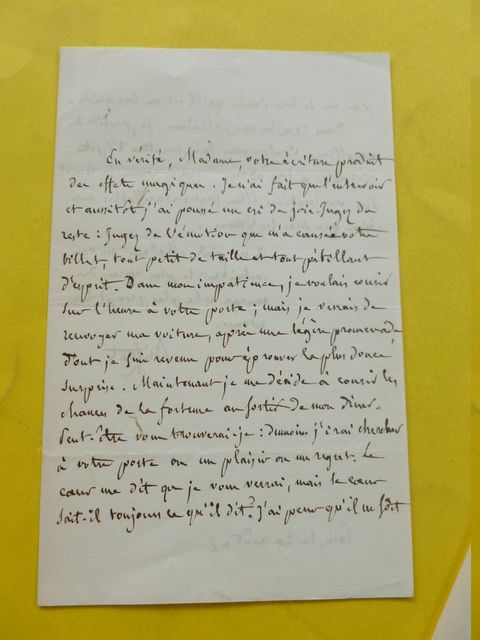 En vérité, Madame, votre écriture produit
des effets magiques. Je n'ai fait que l'entrevoir
et aussitôt j'ai poussé un cri de joie. Jugez du
reste : Jugez de l'émotion que m'a causée votre
billet, tout petit de taille et tout pétillant
d'esprit. Dans mon impatience, je voulais courir
sur l'heure à votre porte ; mais je venais de
renvoyer ma voiture, après une légère promenade,
d'out je suis revenu pour éprouver la plus douce
surprise. Maintenant je me décide à courir les
chances de la fortune au sortir de mon dîner.
Peut-être vous trouverai-je : dumoins j'irai chercher
à votre porte ou un plaisir ou un regret. Le
cœur me dit que je vous verrai, mais le cœur
sait-il toujours ce qu'il dit ? J'ai peur qu'il ne soit